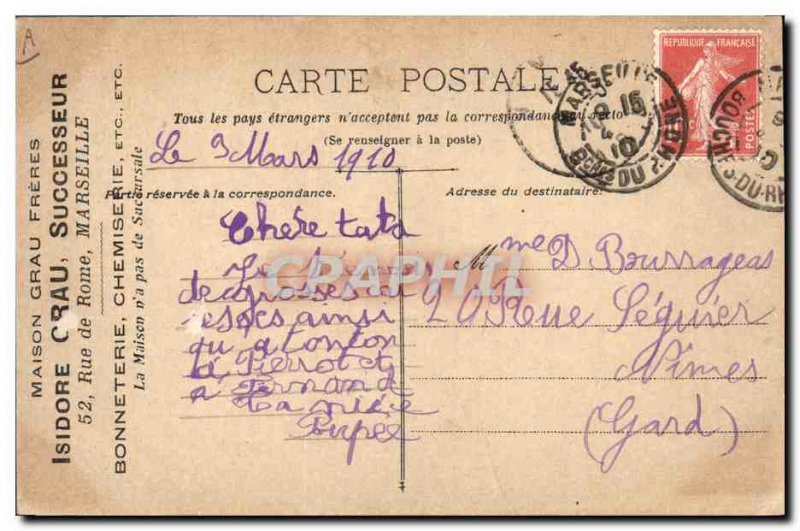 A
MAISON GRAU FRÈRES
ISIDORE GRAU, SUCCESSEUR
52, Rue de Rome, MARSEILLE
BONNETERIE, CHEMISERIE, ETC., ETC.
La Maison n'a pas de Succursale
CARTE POSTALE
Tous les pays étrangers n'acceptent pas la correspondance au recto
(Se renseigner à la poste)
REPUBLIQUE FRANÇAISE
POSTES
MARSEILLE
BCHES DU RHONE
15
10
BOUCHES-DU-RH
Le 3 Mars 1910
Partie réservée à la correspondance.
Adresse du destinataire:
Chère tata
Je
de grosses
ainsi
qu a tonton
à Pierrot et
a Fernand
Ta nièce
Pupée
Mme D. Bourrageas
20 Rue Séguier
Nîmes
(Gard)
CRAPHIL